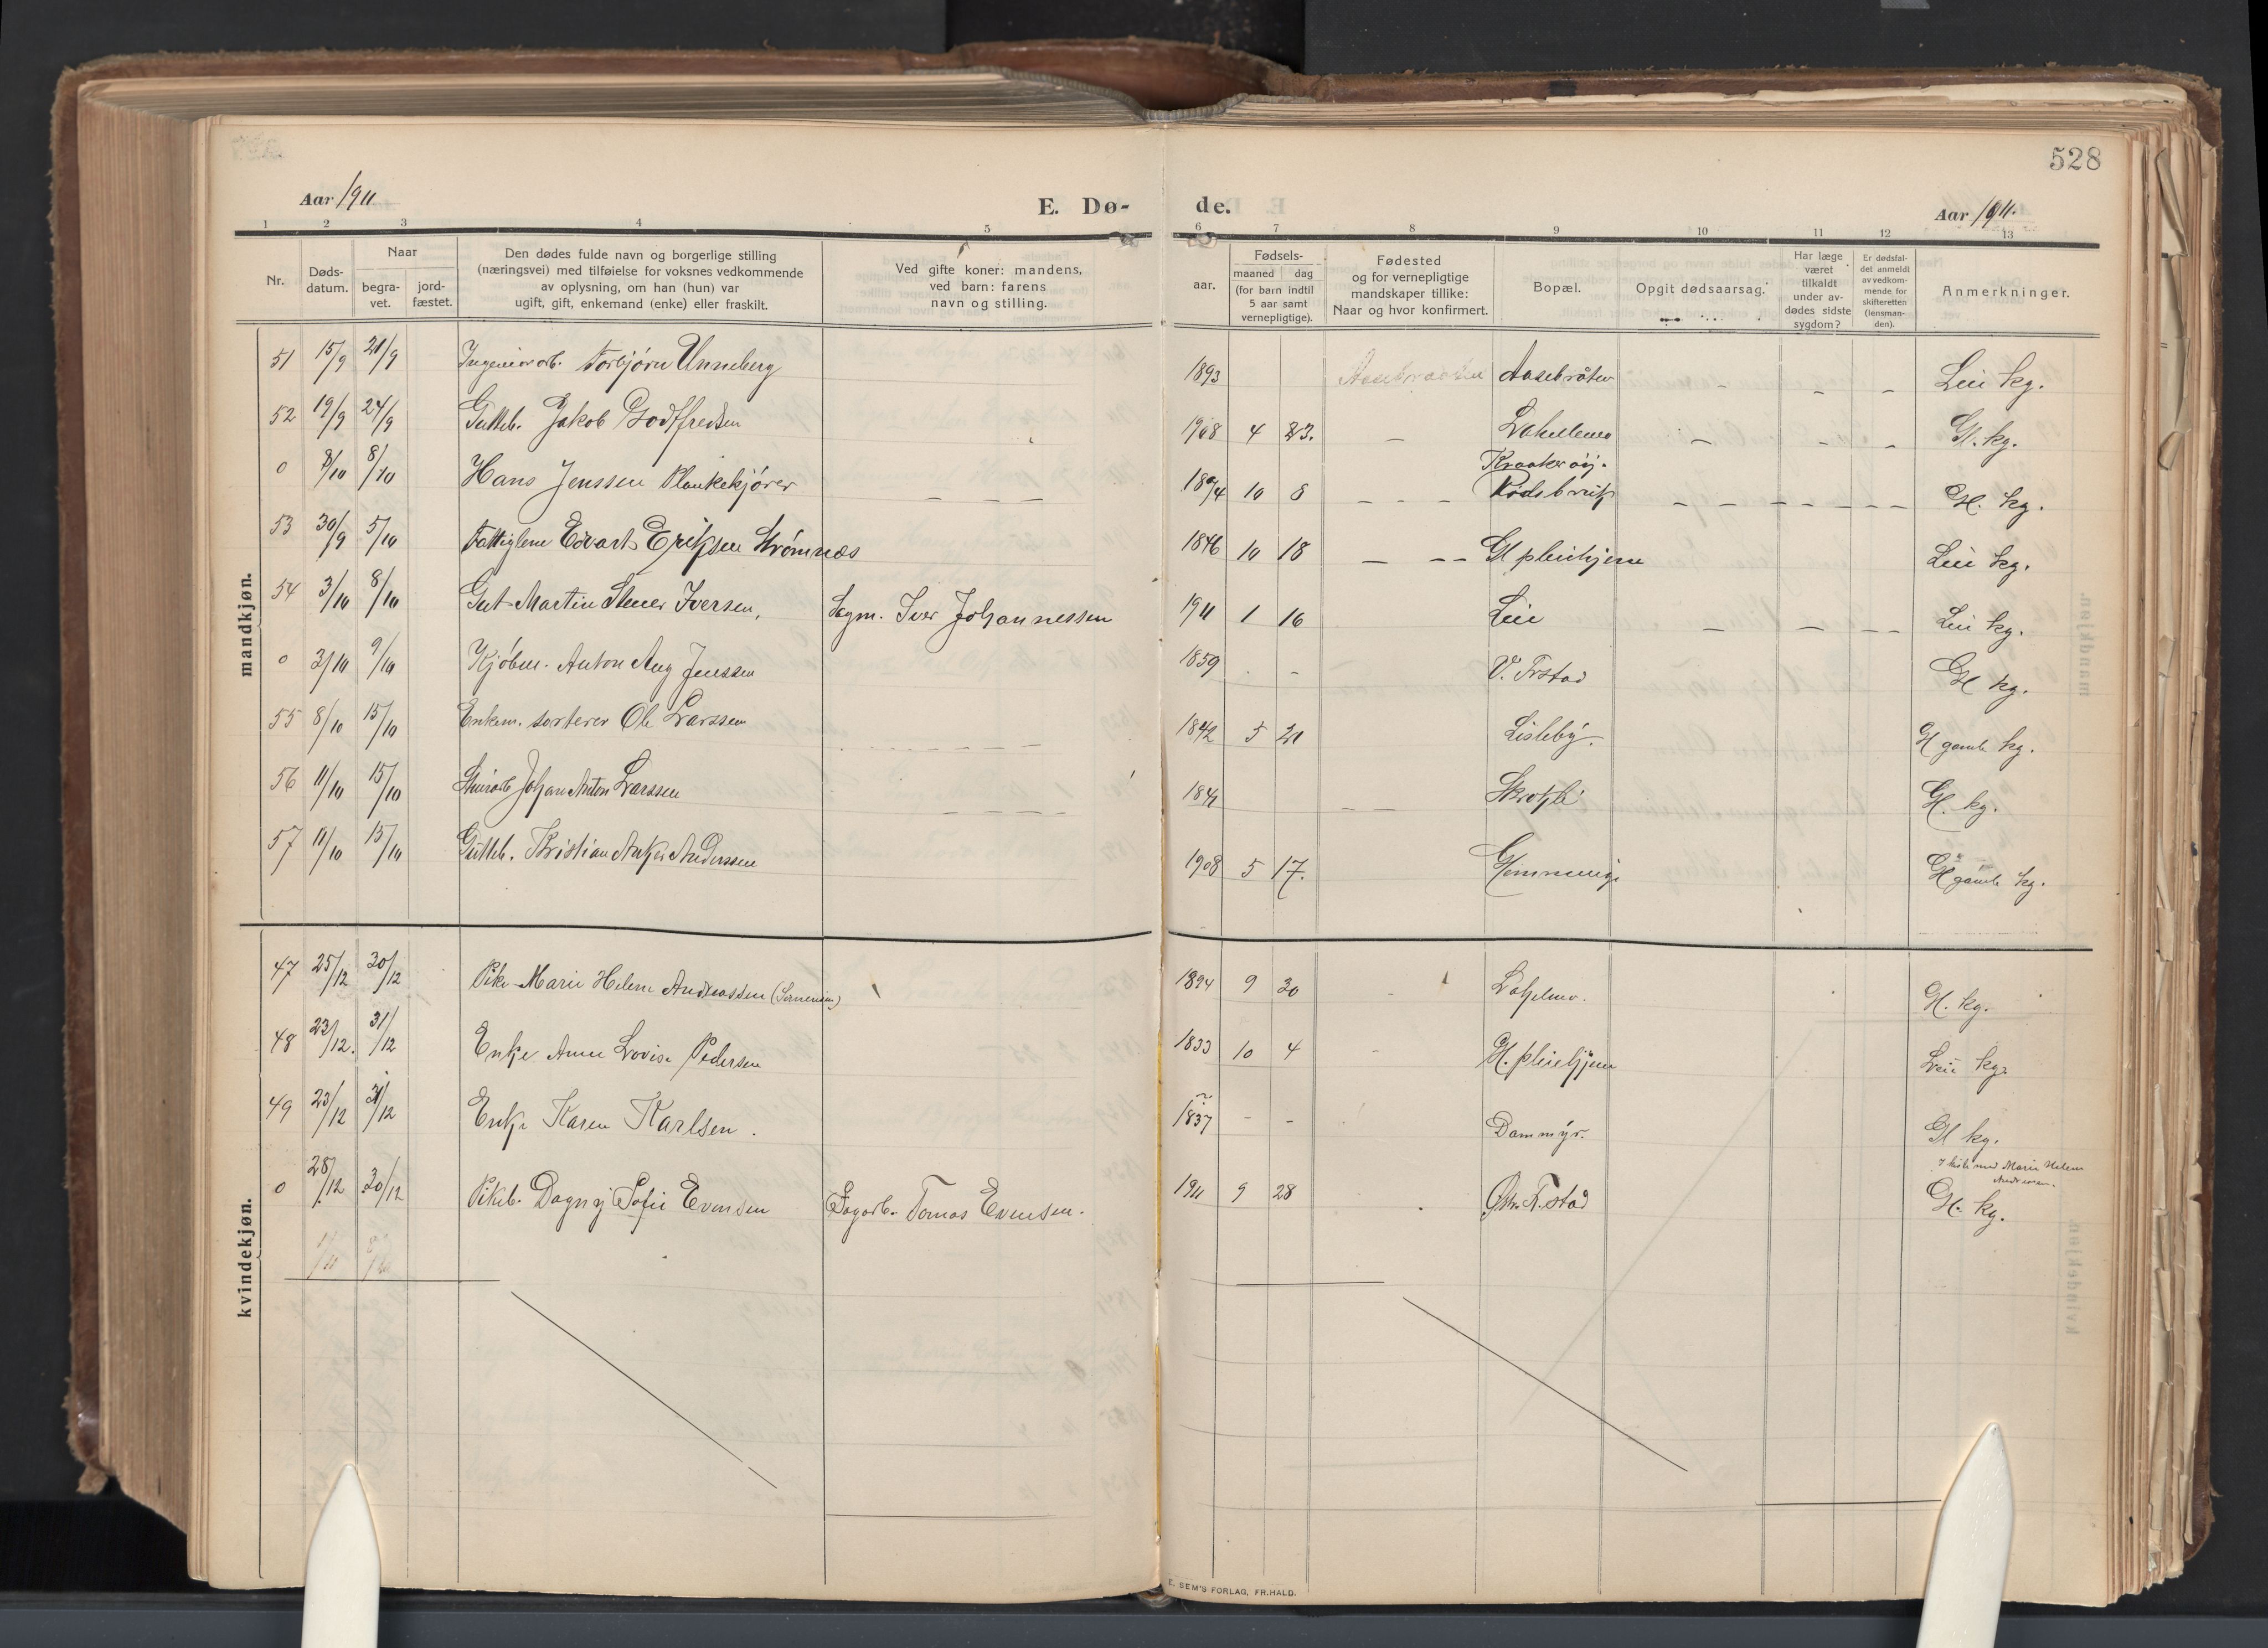 528
Aar 1911 E. Dø- de. Aar 1911.
1 2 3 4 5 6 7 8 9 10 11 12 13
Nr. Døds-datum. Naar begra-vet. jord-fæstet. Den dødes fulde navn og borgerlige stilling (næringsvei) med tilføielse for voksnes vedkommende av oplysning, om han (hun) var ugift, gift, enkemand (enke) eller fraskilt. Ved gifte koner: mandens, ved barn: farens navn og stilling. aar. Fødsels- maaned dag (for barn indtil 5 aar samt vernepligtige). Fødested og for vernepligtige mandskaper tillike: Naar og hvor konfirmert. Bopæl. Opgit dødsaarsag. Har læge været tilkaldt under av-dødes sidste sygdom? Er dødsfal-det anmeldt av vedkom-mende for skifteretten (lensman-den). Anmerkninger.
mandkjøn.
51 15/9 21/9 Torbjørn Unneberg 1893 Aasebråten – – – Leie kg.
52 19/9 24/9 Gutteb. Jakob Godtfredsen 1908 4 23. – – – – Gl. kg.
0 8/10 Hans Jenssen Plankekjører – – – – 10 8 – – – Kraakerøy. – – – – – – – – Gl. kg.
53 30/9 5/10 Fattiglem Edvart Eriksen Strømnæs 1846 10 18 – – – Gl pleiehjem Leie kg.
54 3/10 8/10 Gut Martin Iversen, Sagm. Iver Johannessen 1911 1 16 Leie – – – – Leie kg.
0 3/10 9/10 Kjøbm. Anton Aug Jenssen 1859 – – V. Frstad Gl kg.
55 8/10 15/10 Enkem. sorterer Ole Larssen 1842 5 21 Lisleby. Gl gamle kg.
56 11/10 15/10 Johan Anton Larssen – – – – – – Gl. kg.
57 11/10 15/10 Gutteb. Kristian Anker Anderssen 1908 5 17. Gl gamle kg.
kvindekjøn.
47 25/12 30/12 Pike Marie Helene Andreassen 1894 9 30 – Gl. kg.
48 23/12. 31/12 Enke Anne Lovise Pedersen 1833 10 4 – Gl. pleiehjem Leie kg.
49 23/12 31/12 Enke Karen Karlsen. 1837 – – Dammyr. Gl kg.
0 28/12 30/12 Pikeb. Dagny Sofie Evensen Sagarb. Tomas Evensen. 1911 9 28 Østr. F.stad I kiste med Marie Helene Andreassen. Gl. kg.
E. SEM'S FORLAG, FR.HALD.